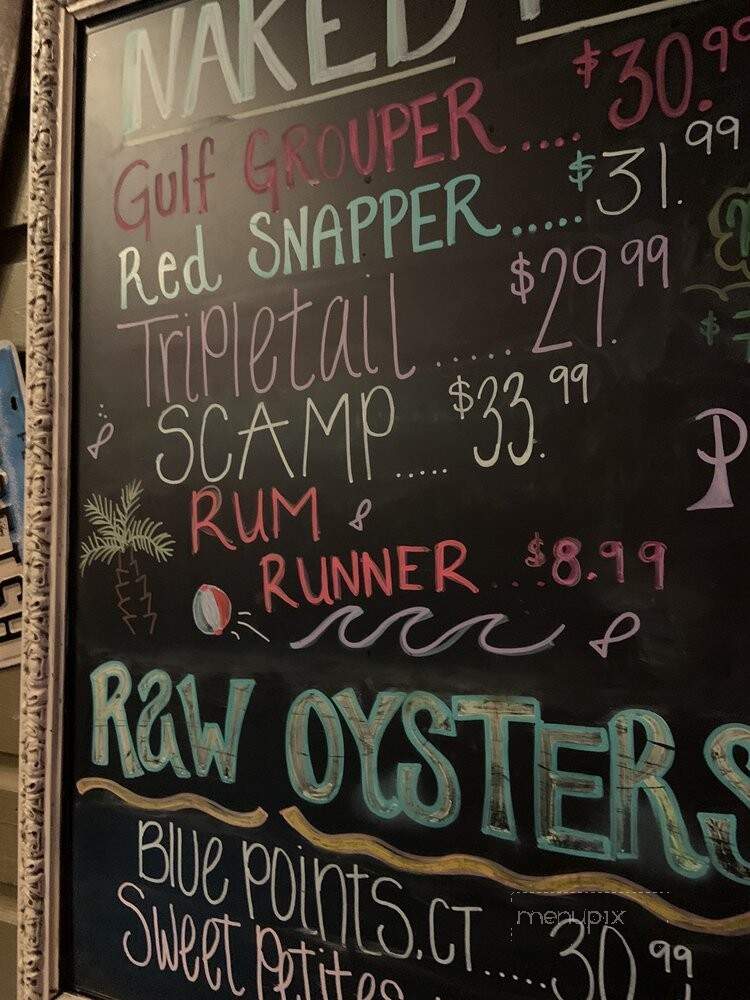 NAKED
Gulf GROUPER .... $30.99
Red SNAPPER ..... $31.99
Tripletail ...... $29.99
SCAMP ..... $33.99
RUM
RUNNER ... $8.99
Raw OYSTERS
Blue Points.CT ..... 30.99
Sweet Petites
menupix